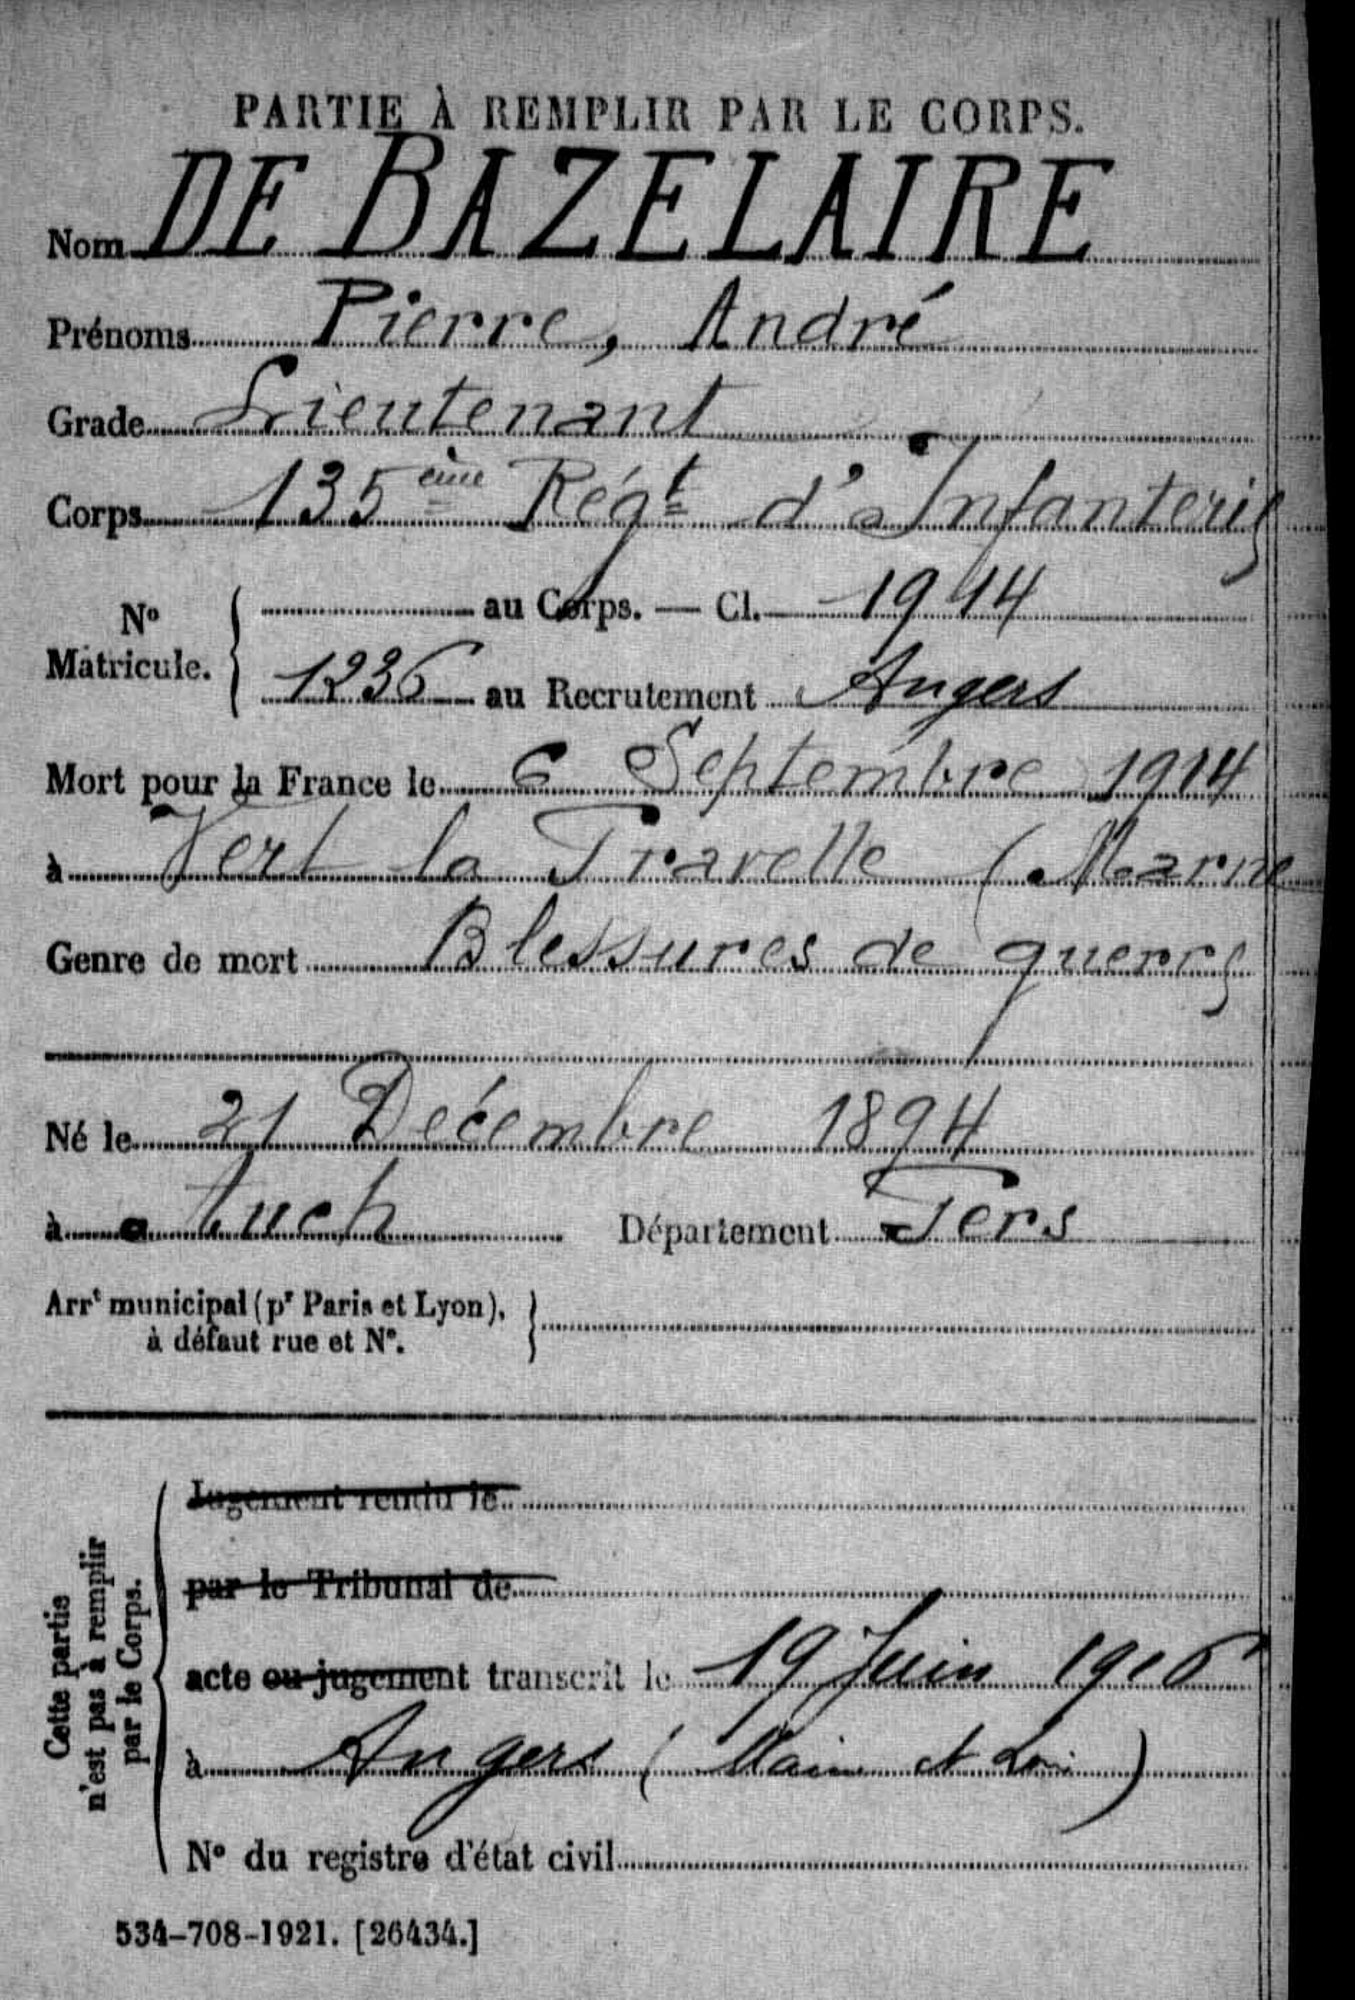 PARTIE À REMPLIR PAR LE CORPS.
Nom DE BAZELAIRE
Prénoms Pierre, André
Grade Lieutenant
Corps 135ème Régt d'Infanterie
No Matricule. { au Corps. — Cl. 1914
1236 au Recrutement Angers
Mort pour la France le 6 Septembre 1914
à Vert la Gravelle (Marne
Genre de mort Blessures de guerre
Né le 21 Décembre 1894
à Auch Département Gers
Arrt municipal (pr Paris et Lyon), }
à défaut rue et No.
Cette partie
n'est pas à remplir
par le Corps.
Jugement rendu le
par le Tribunal de
acte ou jugement transcrit le 19 Juin 1916
à Angers (Maine et Loire)
No du registre d'état civil
534-708-1921. [26434.]